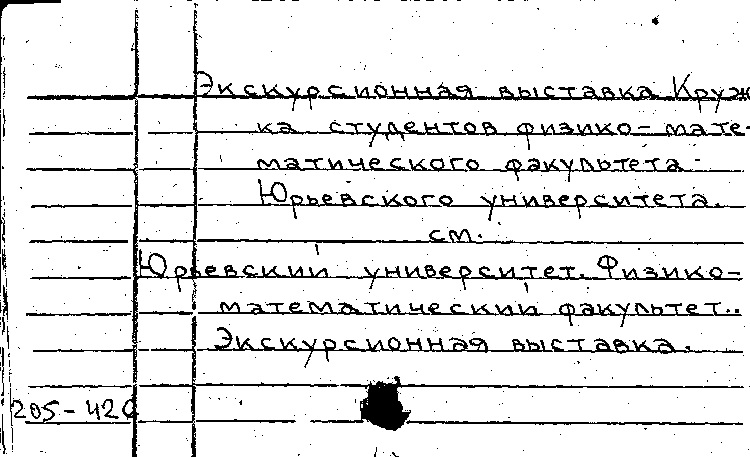 Экскурсионная выставка Круж
ка студентов физико-мате-
матического факультета
Юрьевского университета.
см.
Юрьевский университет. Физико-
математический факультет..
Экскурсионная выставка.
205-420